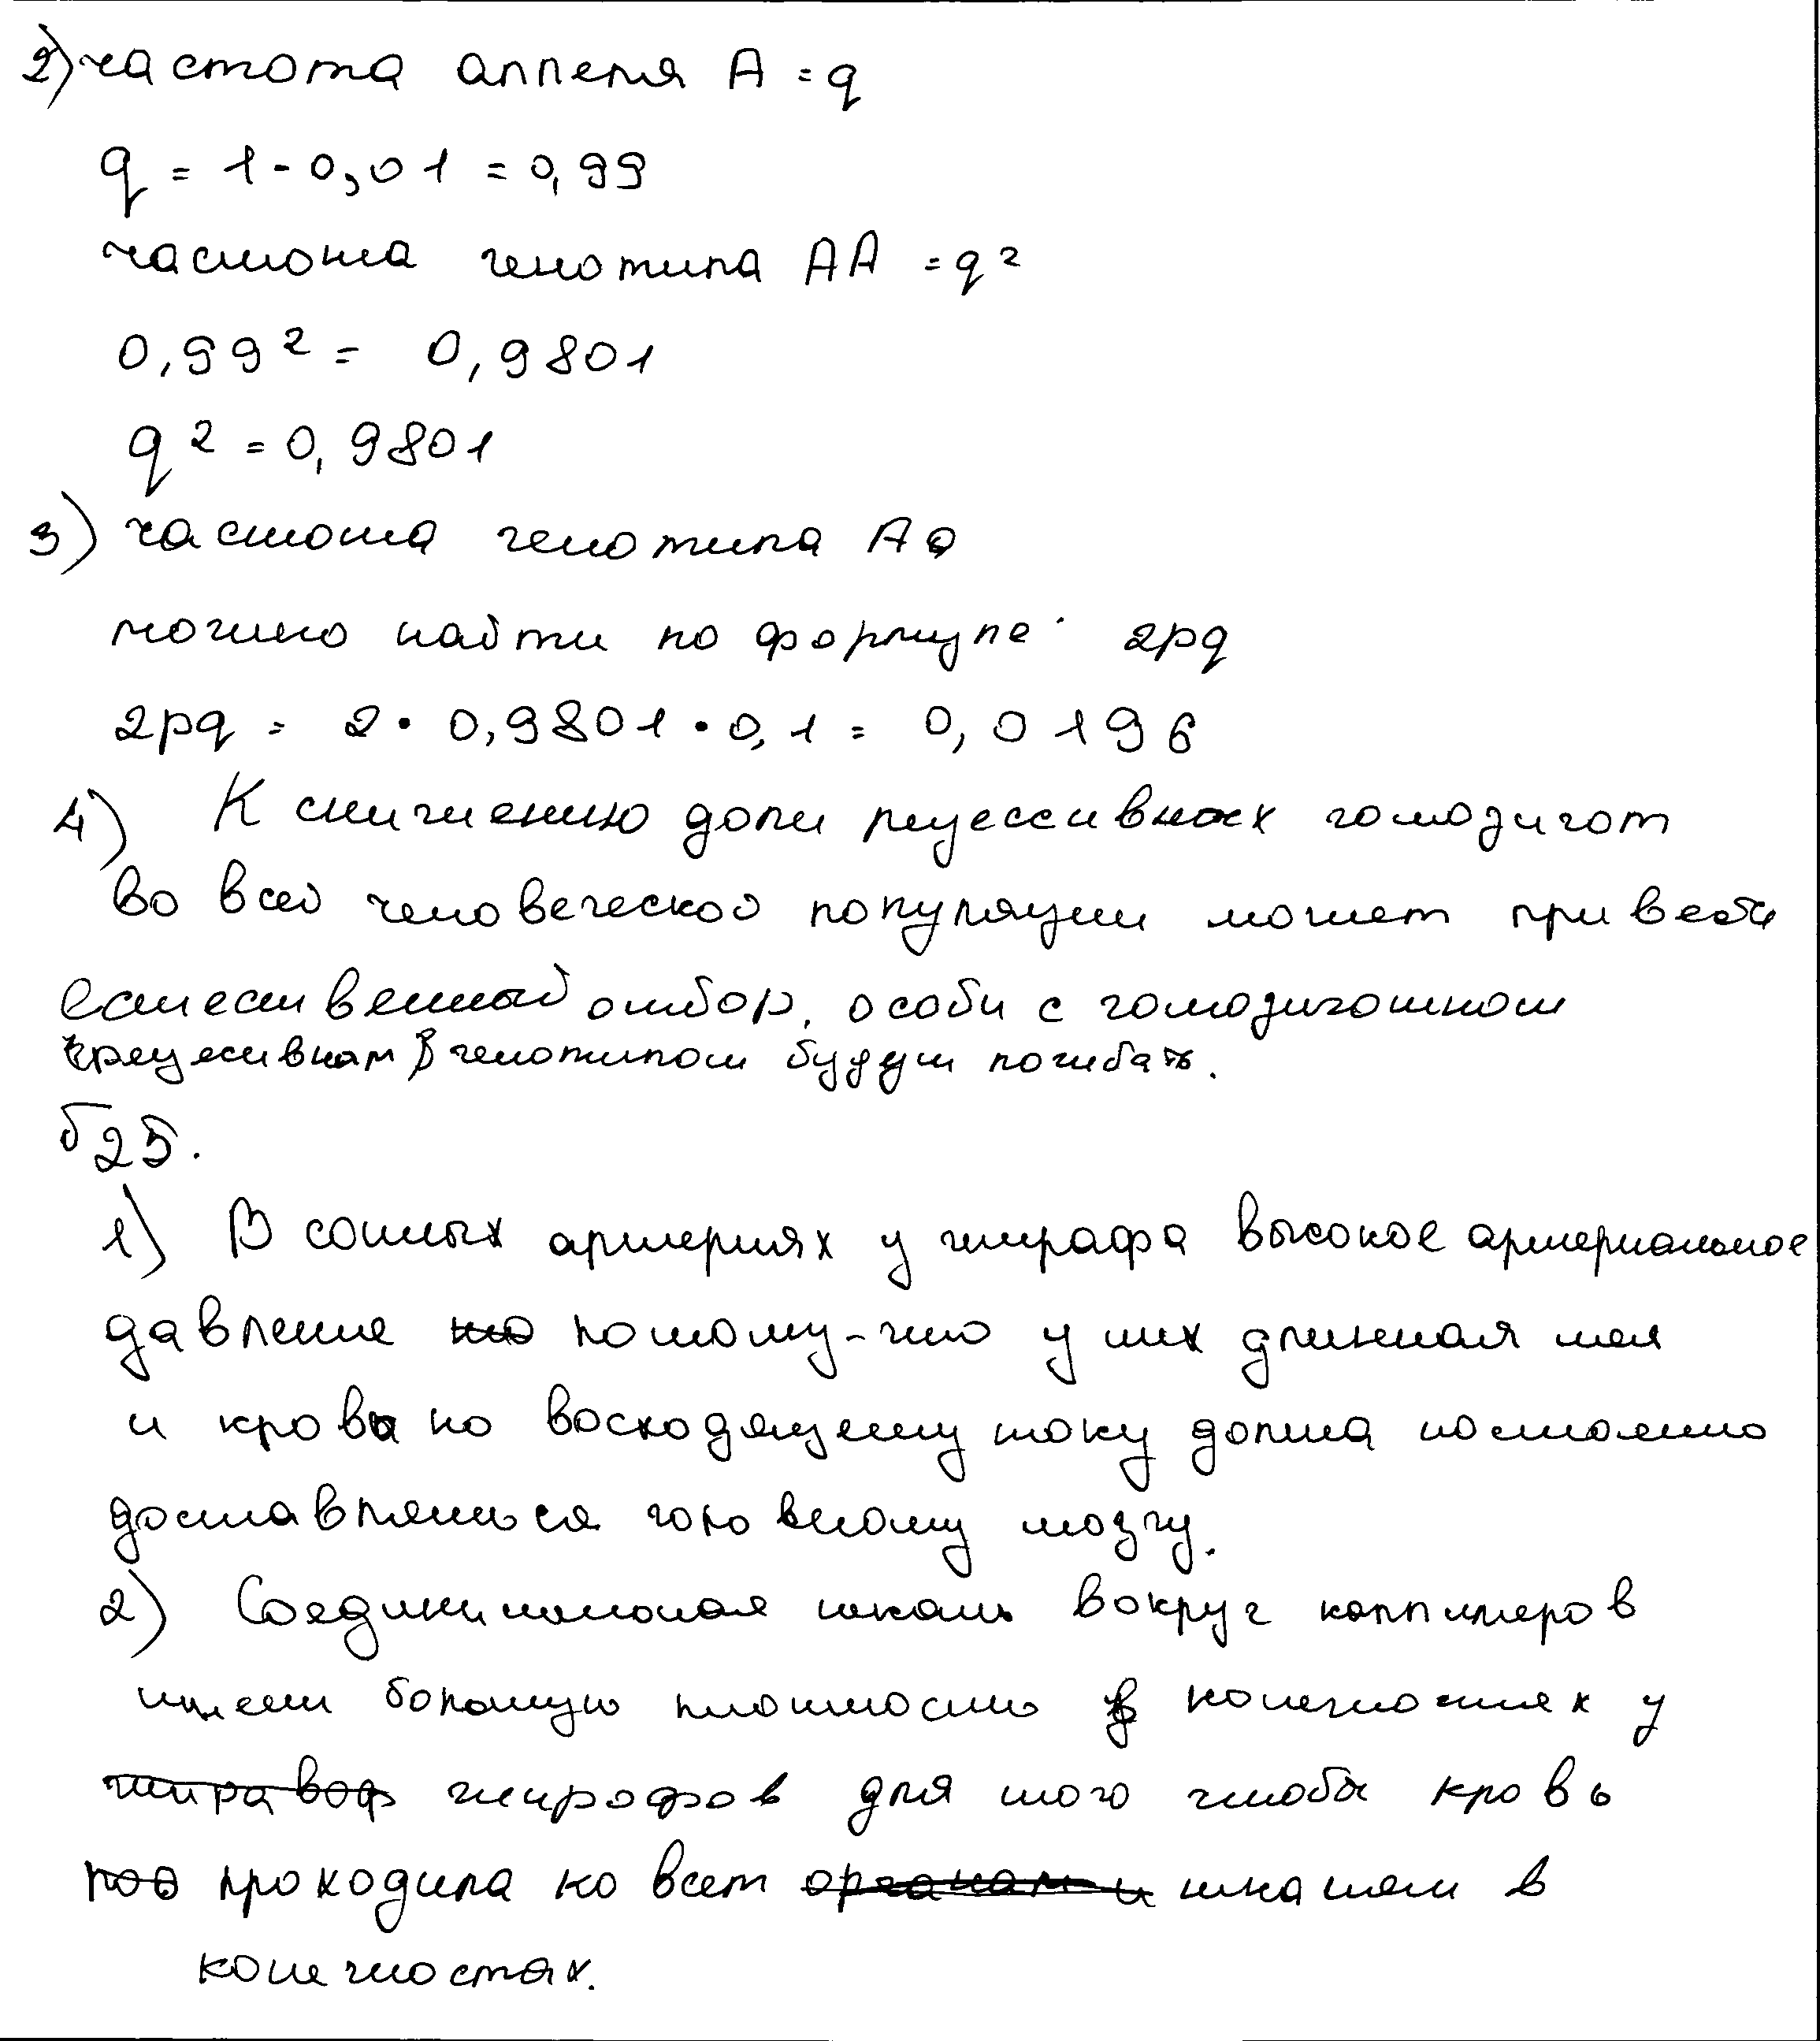 2) частота аллеля А = q
q = 1 - 0,01 = 0,99
частота генотипа АА = q²
0,99² = 0,9801
q² = 0,9801
3) частота генотипа Аа
можно найти по формуле: 2pq
2pq = 2 • 0,9801 • 0,1 = 0,0196
4) К снижению доли рецессивных гомозигот
во всей человеческой популяции может привести
естественный отбор, особи с гомозиготном
рецесивном генотипом будут погибать.
б25.
1) В сонных артериях у жирафа высокое артериальное
давление потому-что у них длинная шея
и кровь по восходящему току долна постоянно
доставляться головному мозгу.
2) Соединительная ткань вокруг каппиляров
имеет большую плотность в конечностях у
жирафов для того чтобы кровь
проходила ко всем тканям в
конечностях.